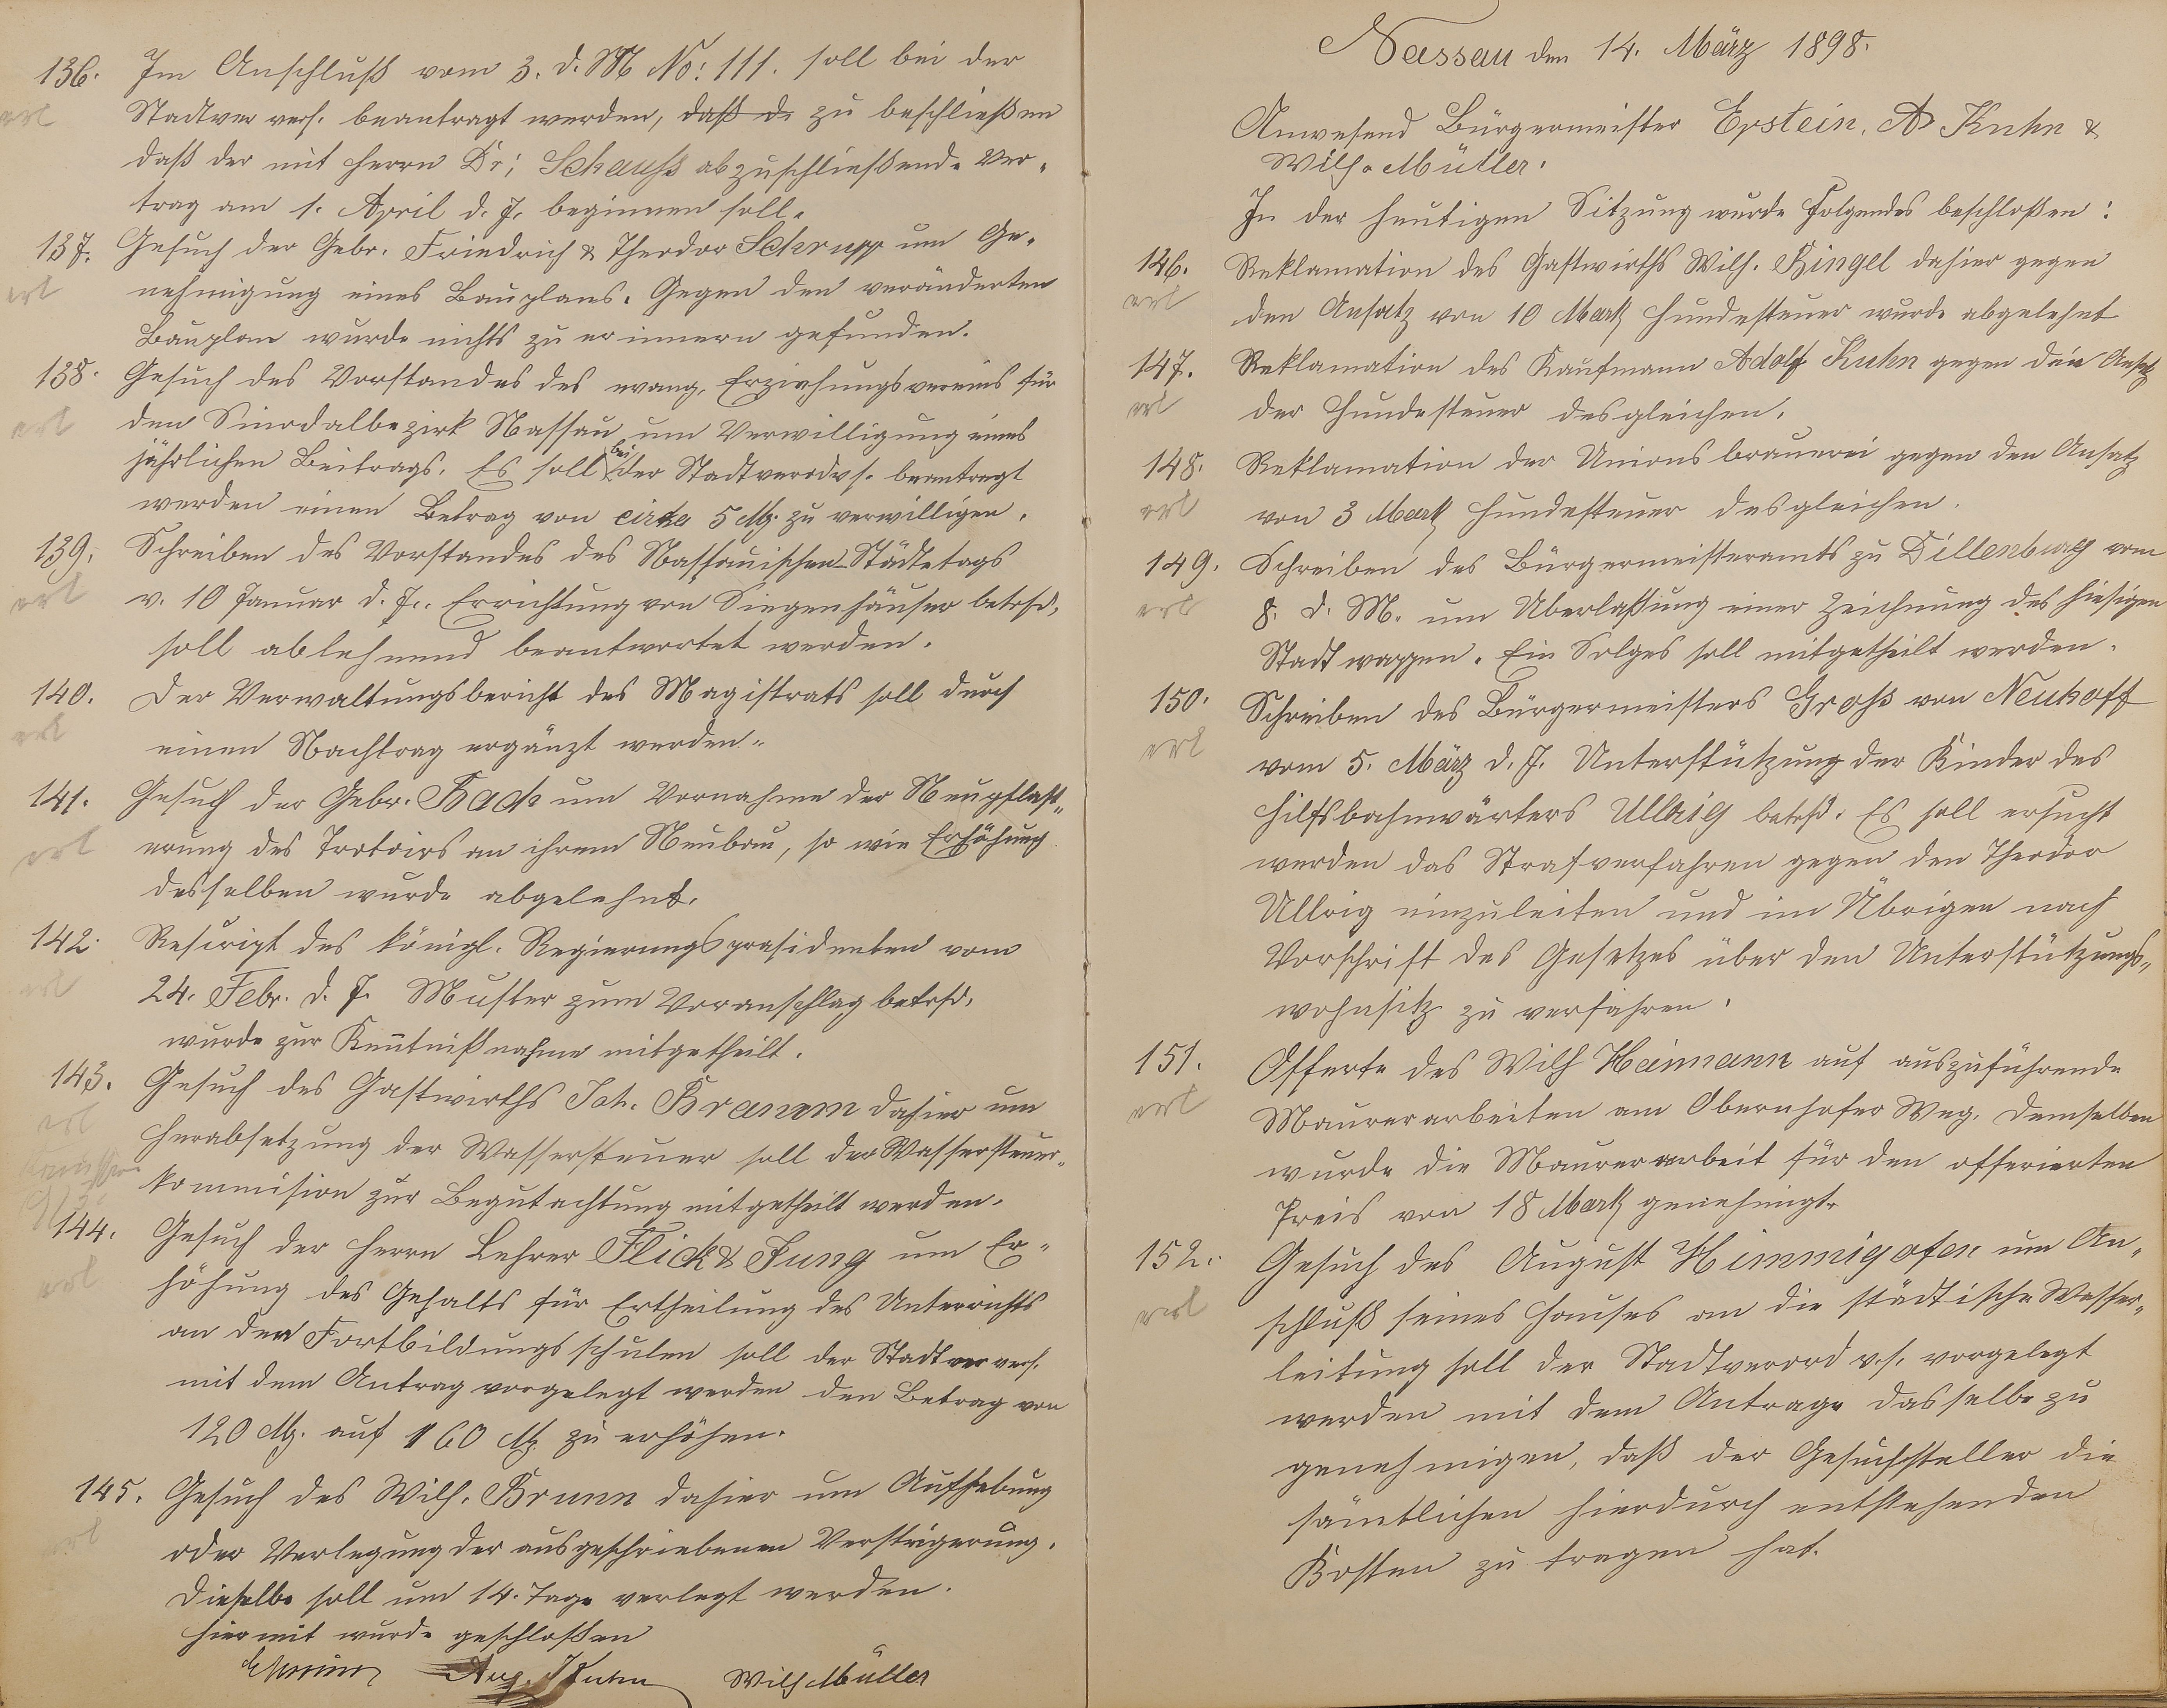 136. Im Anschluß vom 3. d. M No: 111. soll bei der
erl
Stadtver vers. beantragt werden, daß de zu beschließen
daß der mit Herrn Dr: Schauß abzuschließende Ver-
trag am 1. April d. J. beginnen soll.
137. Gesuch der Gebr. Friedrich & Theodor Schrupp um Ge-
erl
nehmigung eines Bauplans. Gegen den veränderten
Bauplan wurde nichts zu erinnern gefunden.
138. Gesuch des Vorstandes des evang. Erziehungsvereins für
erl
den Sinodalbezirk Nassau um Verwilligung eines
jährlichen Beitrags. Es soll bei der Stadtverordvs. beantragt
werden einen Betrag von cirka 5 M. zu verwilligen.
139. Schreiben des Vorstandes des Nassauischen Städtetags
erl
v. 10 Januar d. J. Errichtung von Siegenhäuser betrfd.
soll ablehnend beantwortet werden.
140. Der Verwaltungsbericht des Magistrats soll durch
erl
einen Nachtrag ergänzt werden.
141. Gesuch der Gebr. Bach um Vornahme der Neupflast-
erl
erung des Trotoirs an ihrem Neubau, so wie Erhöhung
desselben wurde abgelehnt.
142. Rescript des königl. Regierungspräsidenten vom
erl
24. Febr. d. J. Muster zum Voranschlag betrfd.
wurde zur Kenntnißnahme mitgetheilt.
143. Gesuch des Gastwirths Joh. Bramm dahier um
erl
Herabsetzung der Wassersteuer soll der Wassersteuer-
kommision zur Begutachtung mitgetheilt werden.
144. Gesuch der Herrn Lehrer Flick & Jung um Er-
erl
höhung des Gehalts für Ertheilung des Unterrichts
an den Fortbildungsschulen soll der Stadtver vers.
mit dem Antrag vorgelegt werden den Betrag von
120 M. auf 160 M. zu erhöhen.
145. Gesuch des Wilh. Brunn dahier um Aufhebung
erl
oder Verlegung der ausgeschriebenen Versteigerung.
Dieselbe soll um 14. Tage verlegt werden.
Hiermit wurde geschloßen
Aug. Kuhn Wilh Müller
Nassau den 14. März 1898.
Anwesend Bürgermeister Epstein, A Kuhn &
Wilh. Müller.
In der heutigen Sitzung wurde Folgendes beschloßen:
146. Reklamation des Gastwirths Wilh. Bingel dahier gegen
erl
den Ansatz von 10 Mark Hundesteuer wurde abgelehnt
147. Reklamation des Kaufmann Adolf Kuhn gegen den Ansatz
erl
der Hundesteuer desgleichen.
148. Reklamation der Unionsbrauerei gegen den Ansatz
erl
von 3 Mark Hundesteuer desgleichen.
149. Schreiben des Bürgermeisteramts zu Dillenburg vom
erl
8. d. M. um Überlaßung einer Zeichnung des hiesigen
Stadtwappen. Ein Solges soll mitgetheilt werden.
150. Schreiben des Bürgermeisters Groß von Neuhoff
erl
vom 5. März d. J. Unterstützung der Kinder des
Hilfsbahnwärters Ullrig betrfd. Es soll ersucht
werden das Strafverfahren gegen den Theodor
Ullrig einzuleiten und im Übrigen nach
Vorschrift des Gesetzes über den Unterstützungs-
wohnsitz zu verfahren.
151. Offerte des Wilh Heimann auf auszuführende
erl
Maurerarbeiten am Obernhofer Weg. Demselben
wurde die Maurerarbeit für den offerierten
Preis von 18 Mark genehmigt.
152. Gesuch des August Himmighofen um An-
erl
schluß seines Hauses an die städtische Wasser-
leitung soll der Stadtverord v.s. vorgelegt
werden mit dem Antrage dasselbe zu
genehmigen, daß der Gesuchsteller die
sämtlichen hierdurch entstehenden
Kosten zu tragen hat.